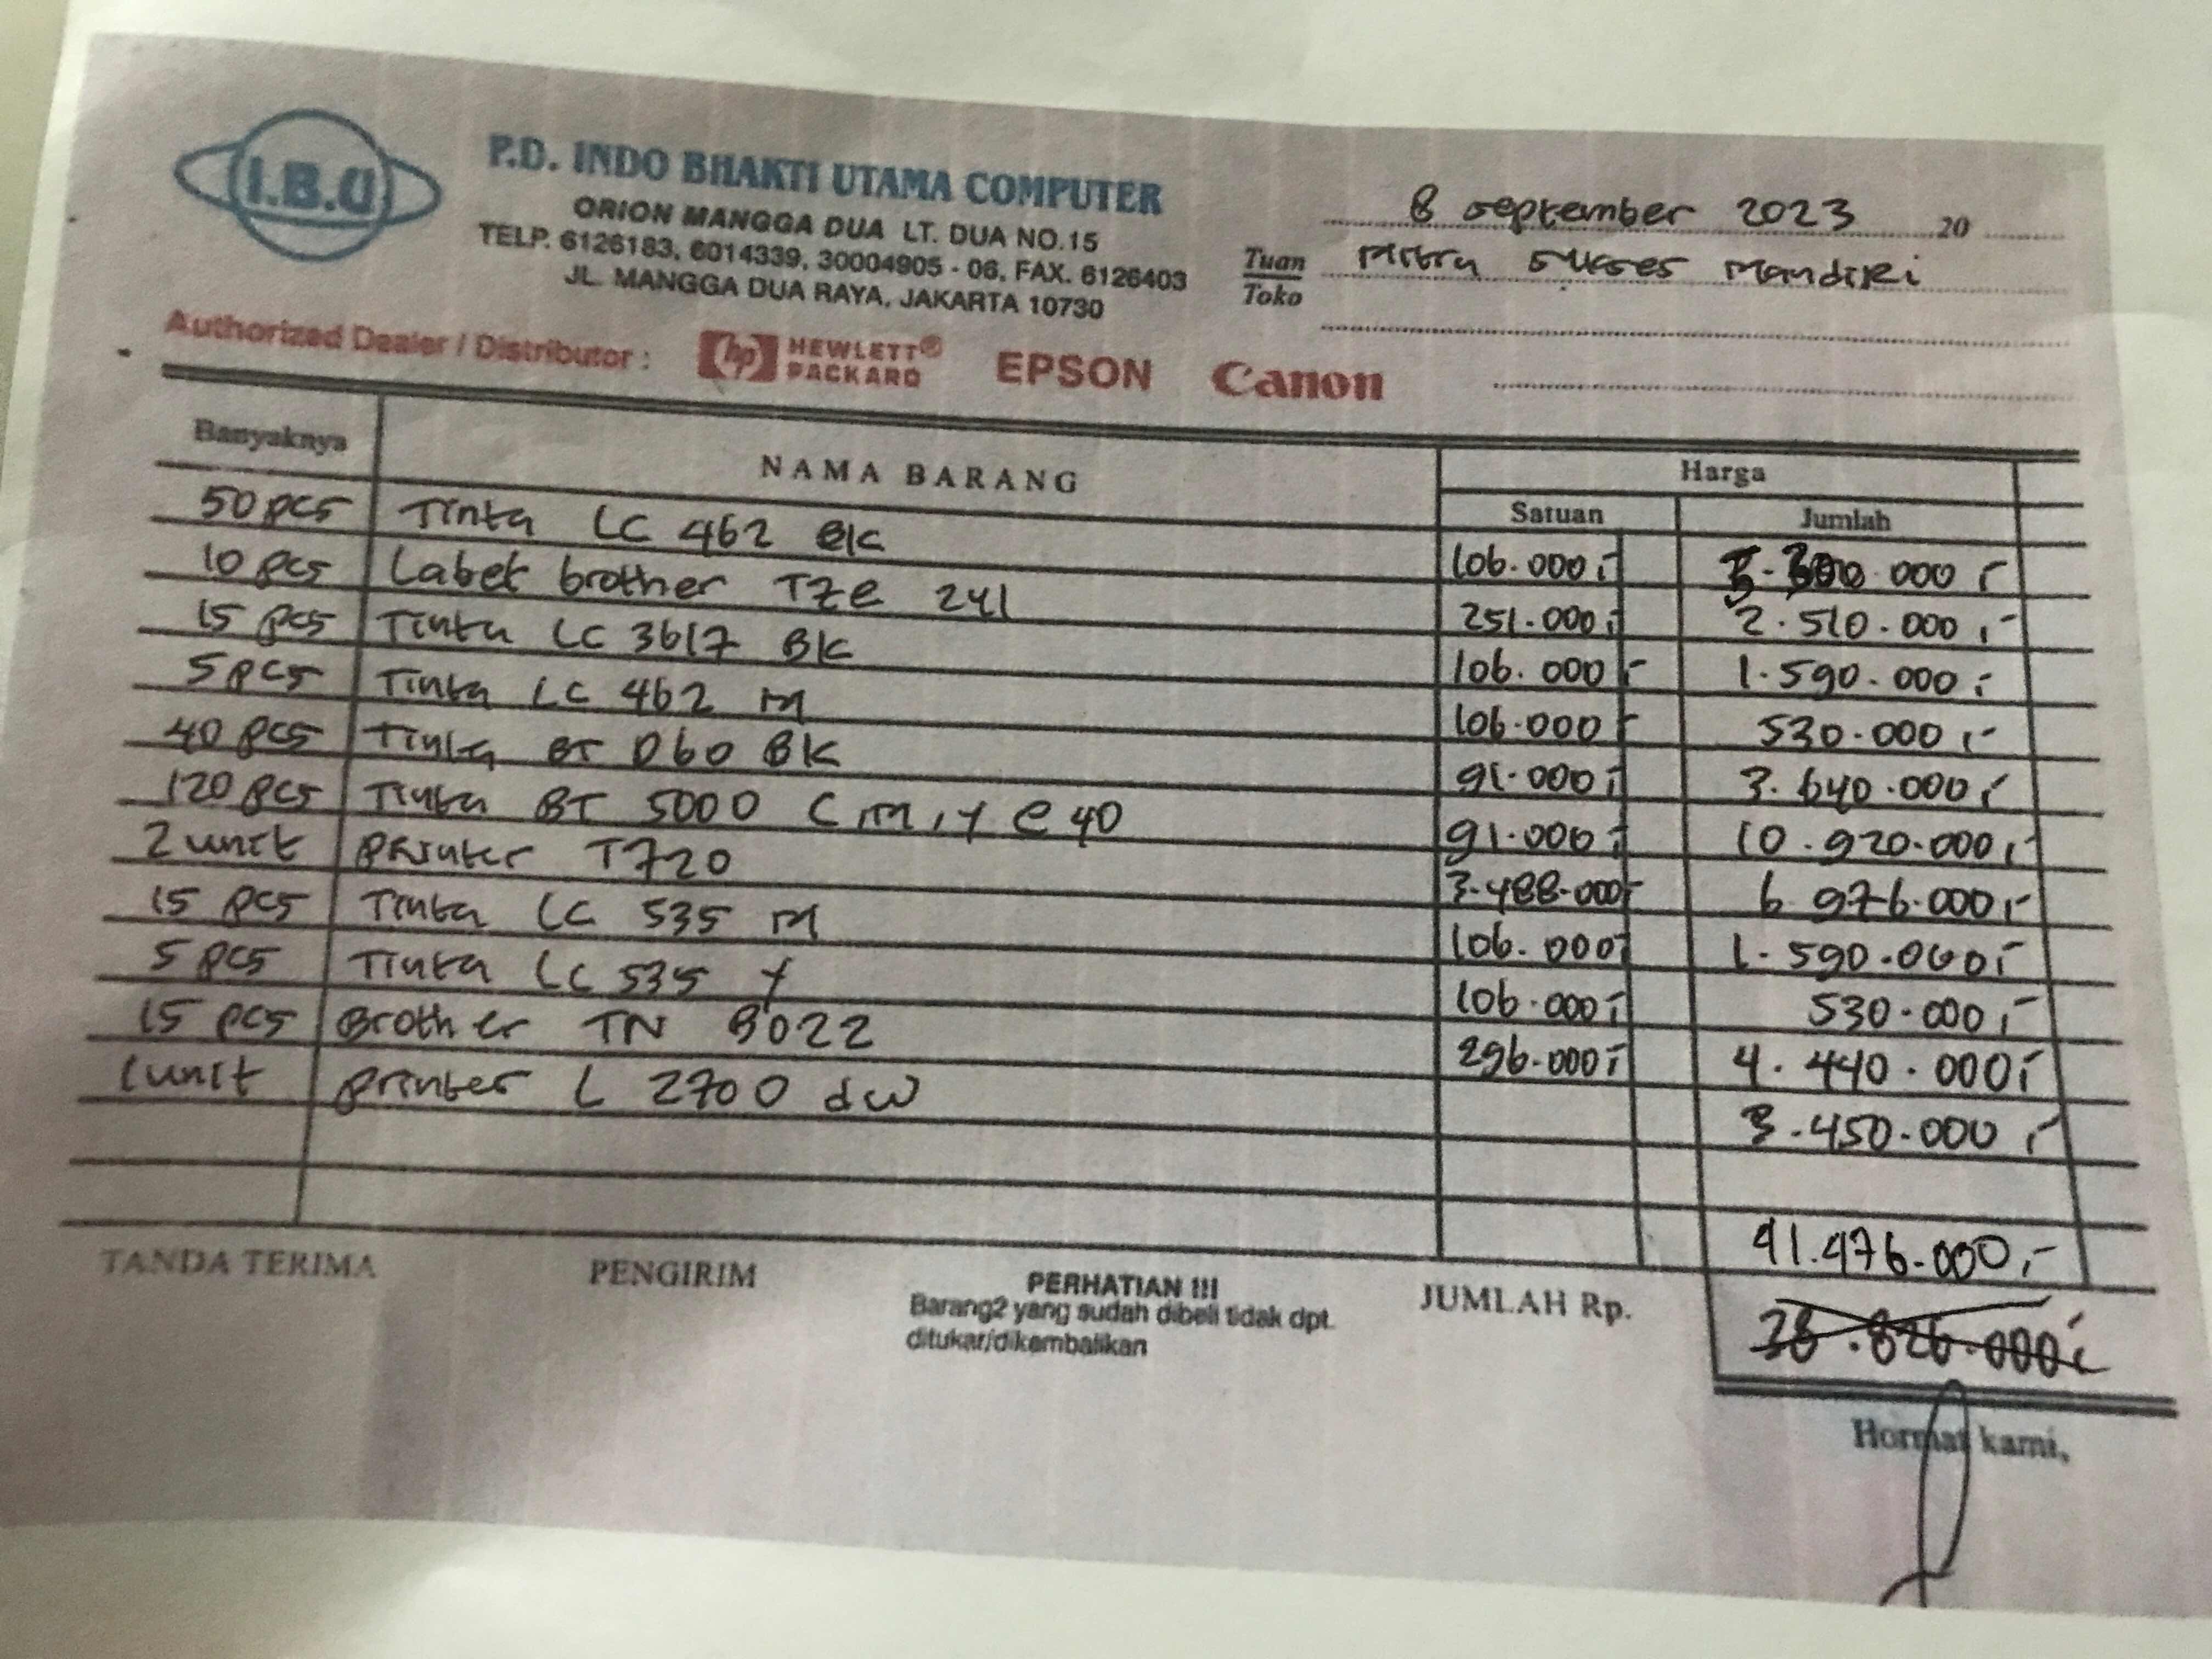 I.B.U
P.D. INDO BHAKTI UTAMA COMPUTER
ORION MANGGA DUA LT. DUA NO.15
TELP. 6126183, 6014339, 30004905 - 06, FAX. 6126403
JL. MANGGA DUA RAYA, JAKARTA 10730
8 september 2023 20
Tuan Mitra Sukses Mandiri
Toko
Authorized Dealer / Distributor : hp HEWLETT® PACKARD EPSON Canon
Banyaknya NAMA BARANG Harga
Satuan Jumlah
50 pcs Tinta LC 462 BK 106.000,- 000,-
10 pcs Label brother TZe 241 251.000,- 2.510.000,-
15 pcs Tinta LC 3617 BK 106.000,- 1.590.000,-
5 pcs Tinta LC 462 M 106.000,- 530.000,-
40 pcs Tinta BT D60 BK 91.000,- 3.640.000,-
120 pcs Tinta BT 5000 C M, Y @ 40 91.000,- 10.920.000,-
2 unit Printer T720 3.488.000,- 6.976.000,-
15 pcs Tinta LC 535 M 106.000,- 1.590.000,-
5 pcs Tinta LC 535 Y 106.000,- 530.000,-
15 pcs Brother TN B022 296.000,- 4.440.000,-
1 unit Printer L 2700 dw 3.450.000,-
41.476.000,-
TANDA TERIMA PENGIRIM PERHATIAN !!! JUMLAH Rp.
Barang2 yang sudah dibeli tidak dpt.
ditukar/dikembalikan
Hormat kami,